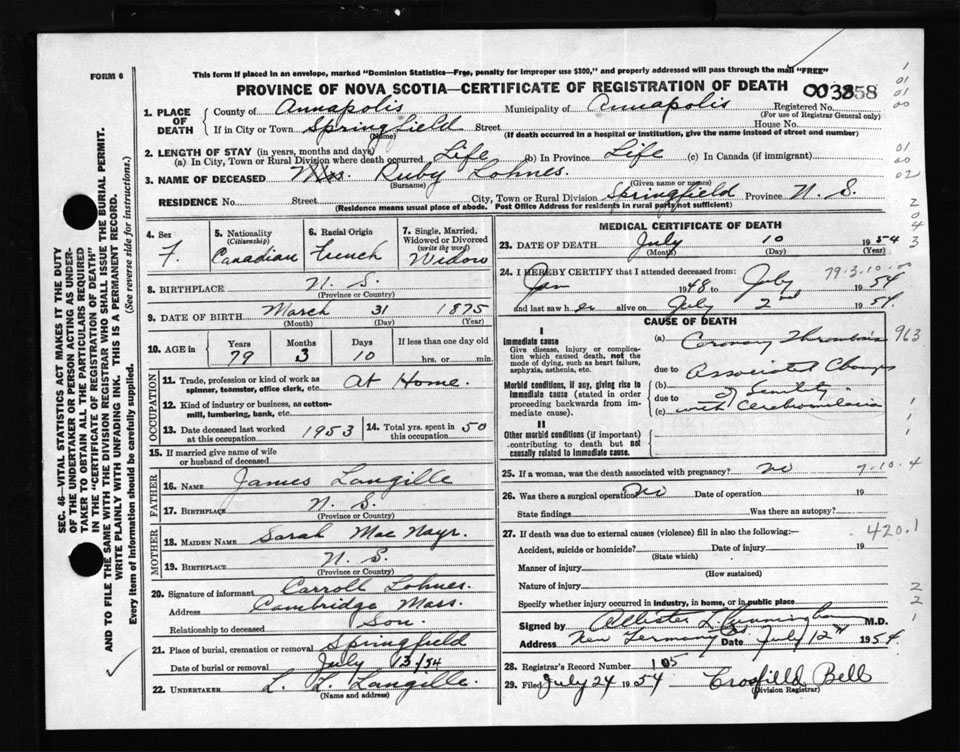 FORM 6
This form if placed in an envelope, marked "Dominion Statistics—Free, penalty for improper use $300," and properly addressed will pass through the mail "FREE"
PROVINCE OF NOVA SCOTIA—CERTIFICATE OF REGISTRATION OF DEATH 003358
1. PLACE OF DEATH County of Annapolis Municipality of Annapolis Registered No.
(For use of Registrar General only)
If in City or Town Springfield Street House No.
(Name) (If death occurred in a hospital or institution, give the name instead of street and number)
2. LENGTH OF STAY (in years, months and days)
(a) In City, Town or Rural Division where death occurred Life (b) In Province Life (c) In Canada (if immigrant)
3. NAME OF DECEASED Mrs. Ruby Lohnes.
(Surname) (Given name or names)
RESIDENCE No. Street City, Town or Rural Division Springfield Province N. S.
(Residence means usual place of abode. Post Office Address for residents in rural parts not sufficient)
4. Sex F.
5. Nationality (Citizenship) Canadian
6. Racial Origin French
7. Single, Married, Widowed or Divorced (write the word) Widow
8. BIRTHPLACE N. S.
(Province or Country)
9. DATE OF BIRTH March 31 1875
(Month) (Day) (Year)
10. AGE in Years 79 Months 3 Days 10 If less than one day old hrs. or min.
OCCUPATION
11. Trade, profession or kind of work as spinner, teamster, office clerk, etc. At Home.
12. Kind of industry or business, as cotton-mill, lumbering, bank, etc.
13. Date deceased last worked at this occupation 1953
14. Total yrs. spent in this occupation 50
15. If married give name of wife or husband of deceased
FATHER
16. NAME James Langille
17. BIRTHPLACE N. S.
(Province or Country)
MOTHER
18. MAIDEN NAME Sarah Mac Nayr.
19. BIRTHPLACE N. S.
(Province or Country)
20. Signature of informant Carroll Lohnes.
Address Cambridge Mass.
Relationship to deceased Son.
21. Place of burial, cremation or removal Springfield
Date of burial or removal July 13/54
22. UNDERTAKER L. L. Langille.
(Name and address)
MEDICAL CERTIFICATE OF DEATH
23. DATE OF DEATH July 10 1954
(Month) (Day) (Year)
24. I HEREBY CERTIFY that I attended deceased from: 79-3-10-00
Jan 1948 to July 1954
and last saw her alive on July 2nd 1954.
CAUSE OF DEATH
I
Immediate cause
Give disease, injury or complication which caused death, not the mode of dying, such as heart failure, asphyxia, asthenia, etc.
(a) Coronary Thrombosis 963
due to Associated Changes
Morbid conditions, if any, giving rise to immediate cause (stated in order proceeding backwards from immediate cause).
(b) of Senility
due to
(c) with
II
Other morbid conditions (if important) contributing to death but not causally related to immediate cause.
25. If a woman, was the death associated with pregnancy? no 7-10-4
26. Was there a surgical operation? No Date of operation 19
State findings Was there an autopsy?
27. If death was due to external causes (violence) fill in also the following:— 420.1
Accident, suicide or homicide? Date of injury 19
(State which)
Manner of injury
(How sustained)
Nature of injury
Specify whether injury occurred in industry, in home, or in public place
Signed by Allister L. Cunningham M.D.
Address New Germany Date July 12th 1954.
28. Registrar's Record Number 105
29. Filed July 24 1954 Crosfield Bell
(Division Registrar)
SEC. 46—VITAL STATISTICS ACT MAKES IT THE DUTY
OF THE UNDERTAKER OR PERSON ACTING AS UNDER-
TAKER TO OBTAIN ALL THE PARTICULARS REQUIRED
IN THE "CERTIFICATE OF REGISTRATION OF DEATH"
AND TO FILE THE SAME WITH THE DIVISION REGISTRAR WHO SHALL ISSUE THE BURIAL PERMIT.
WRITE PLAINLY WITH UNFADING INK. THIS IS A PERMANENT RECORD.
Every item of information should be carefully supplied. (See reverse side for instructions.)
1
01
01
00
01
00
02
2
0
4
3
1
1
2
2
1